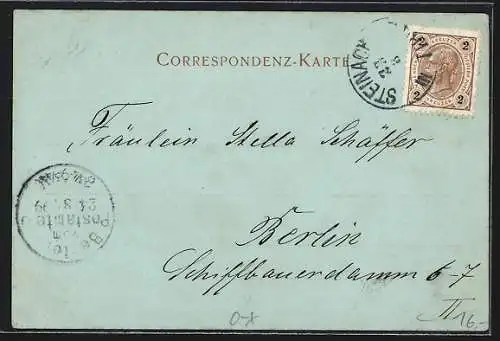 CORRESPONDENZ-KARTE
STEINACH
23
8
2 2
2 2
Fräulein Stella Schäffer
Berlin
Schiffbauerdamm 6-7
Postamte
24 8 99
II 16,-